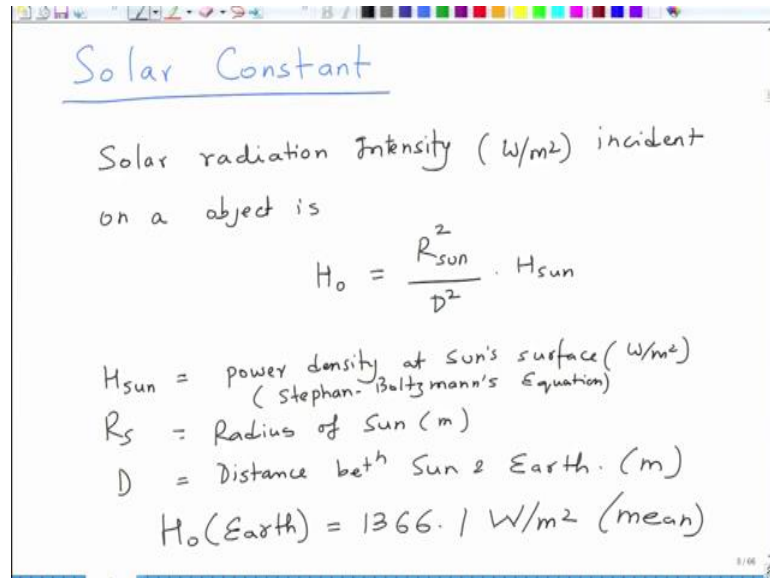 Solar Constant
Solar radiation Intensity (W/m²) incident
on a object is
H₀ = R²sun / D² . Hsun
Hsun = power density at sun's surface (W/m²)
(Stephan-Boltzmann's Equation)
Rs = Radius of Sun (m)
D = Distance betⁿ Sun & Earth. (m)
H₀(Earth) = 1366.1 W/m² (mean)